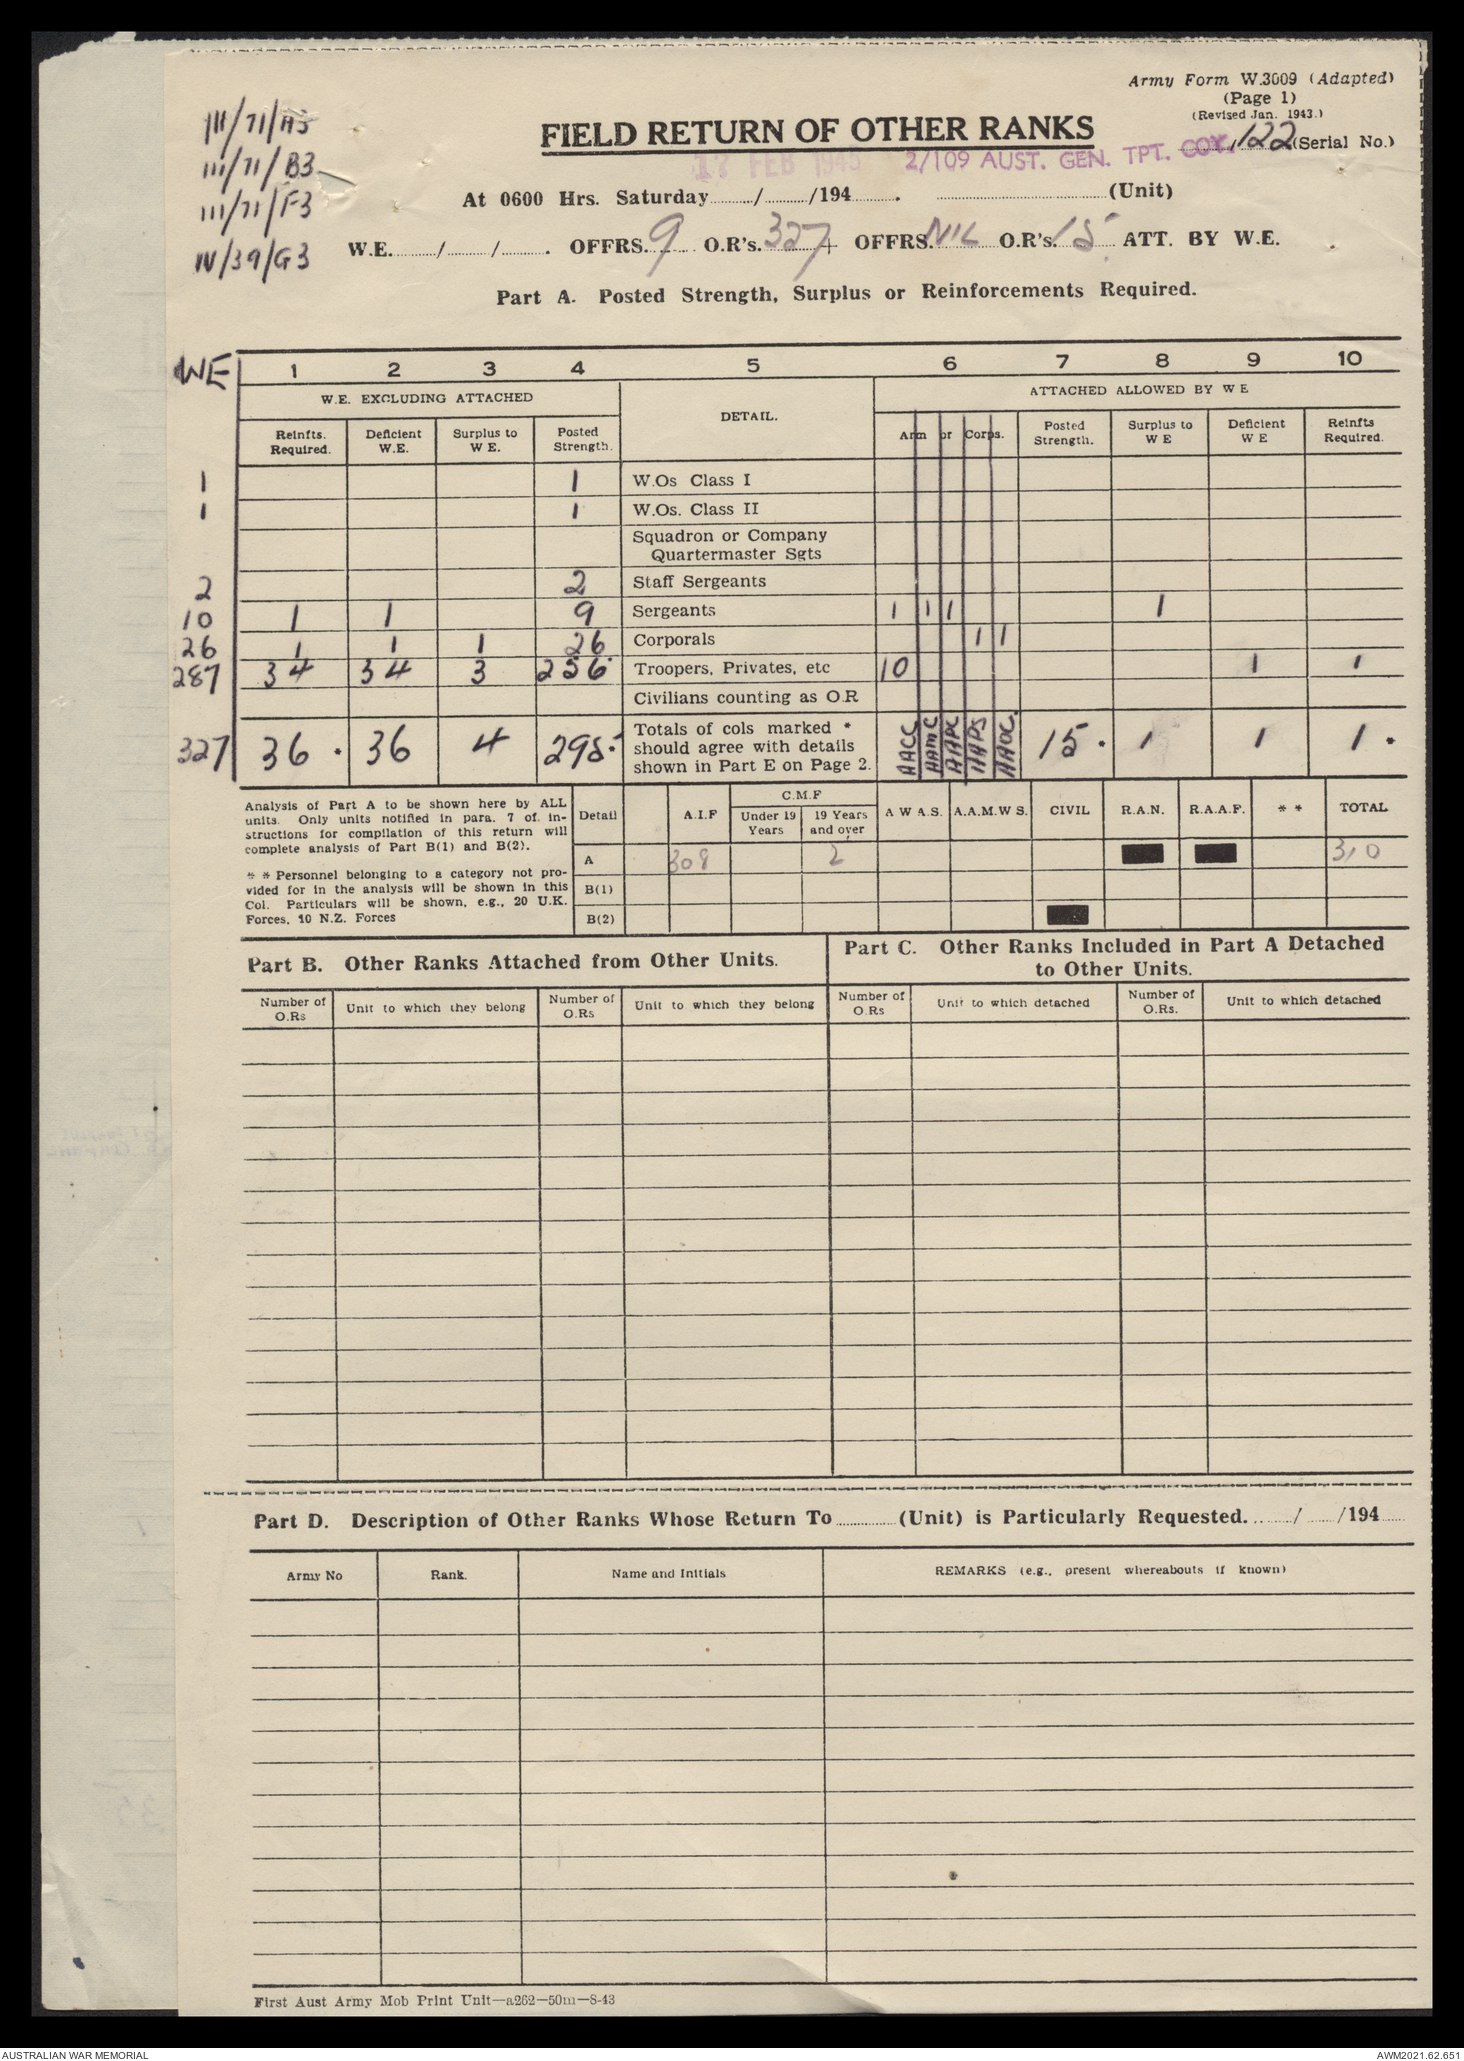 Army Form W.3009 (Adapted)
(Page 1)
(Revised Jan. 1943.)
122 (Serial No.)
III/71/A3
III/71/B3
III/71/F3
IV/39/G3
FIELD RETURN OF OTHER RANKS
17 FEB 1945 2/109 AUST. GEN. TPT. COY.
At 0600 Hrs. Saturday....../....../194...... . ...............(Unit)
W.E....../....../...... . OFFRS. 9 O.R's. 327 + OFFRS. NIL O.R's. 15 ATT. BY W.E.
Part A. Posted Strength, Surplus or Reinforcements Required.
WE 1 2 3 4 5 6 7 8 9 10
W.E. EXCLUDING ATTACHED DETAIL. ATTACHED ALLOWED BY W E
Reinfts. Required. Deficient W.E. Surplus to W E. Posted Strength. Arm or Corps. Posted Strength. Surplus to W E Deficient W E Reinfts Required.
1 1 W.Os Class I
1 1 W.Os. Class II
Squadron or Company
Quartermaster Sgts
2 2 Staff Sergeants
10 1 1 9 Sergeants 1 1 1 1
26 1 1 1 26 Corporals 1 1
287 34 34 3 256 Troopers, Privates, etc 10 1 1
Civilians counting as O.R
327 36 . 36 4 295 . Totals of cols marked * should agree with details shown in Part E on Page 2. AACC AAMC AAPC AAPS AAOC. 15 . 1 1 1 .
Analysis of Part A to be shown here by ALL
units. Only units notified in para. 7 of. in-
structions for compilation of this return will
complete analysis of Part B(1) and B(2).
* * Personnel belonging to a category not pro-
vided for in the analysis will be shown in this
Col. Particulars will be shown, e.g., 20 U.K.
Forces, 10 N.Z. Forces
Detail A.I.F C.M.F A W A.S. A.A.M.W S. CIVIL R.A.N. R.A.A.F. * * TOTAL
Under 19 Years 19 Years and over
A 308 2 310
B(1)
B(2)
Part B. Other Ranks Attached from Other Units.
Part C. Other Ranks Included in Part A Detached
to Other Units.
Number of O.Rs Unit to which they belong Number of O.Rs Unit to which they belong Number of O.Rs Unit to which detached Number of O.Rs. Unit to which detached
Part D. Description of Other Ranks Whose Return To............ (Unit) is Particularly Requested. ....../....../194......
Army No Rank. Name and Initials REMARKS (e.g., present whereabouts if known)
First Aust Army Mob Print Unit—a262—50m—8-43
AUSTRALIAN WAR MEMORIAL
AWM2021.62.651